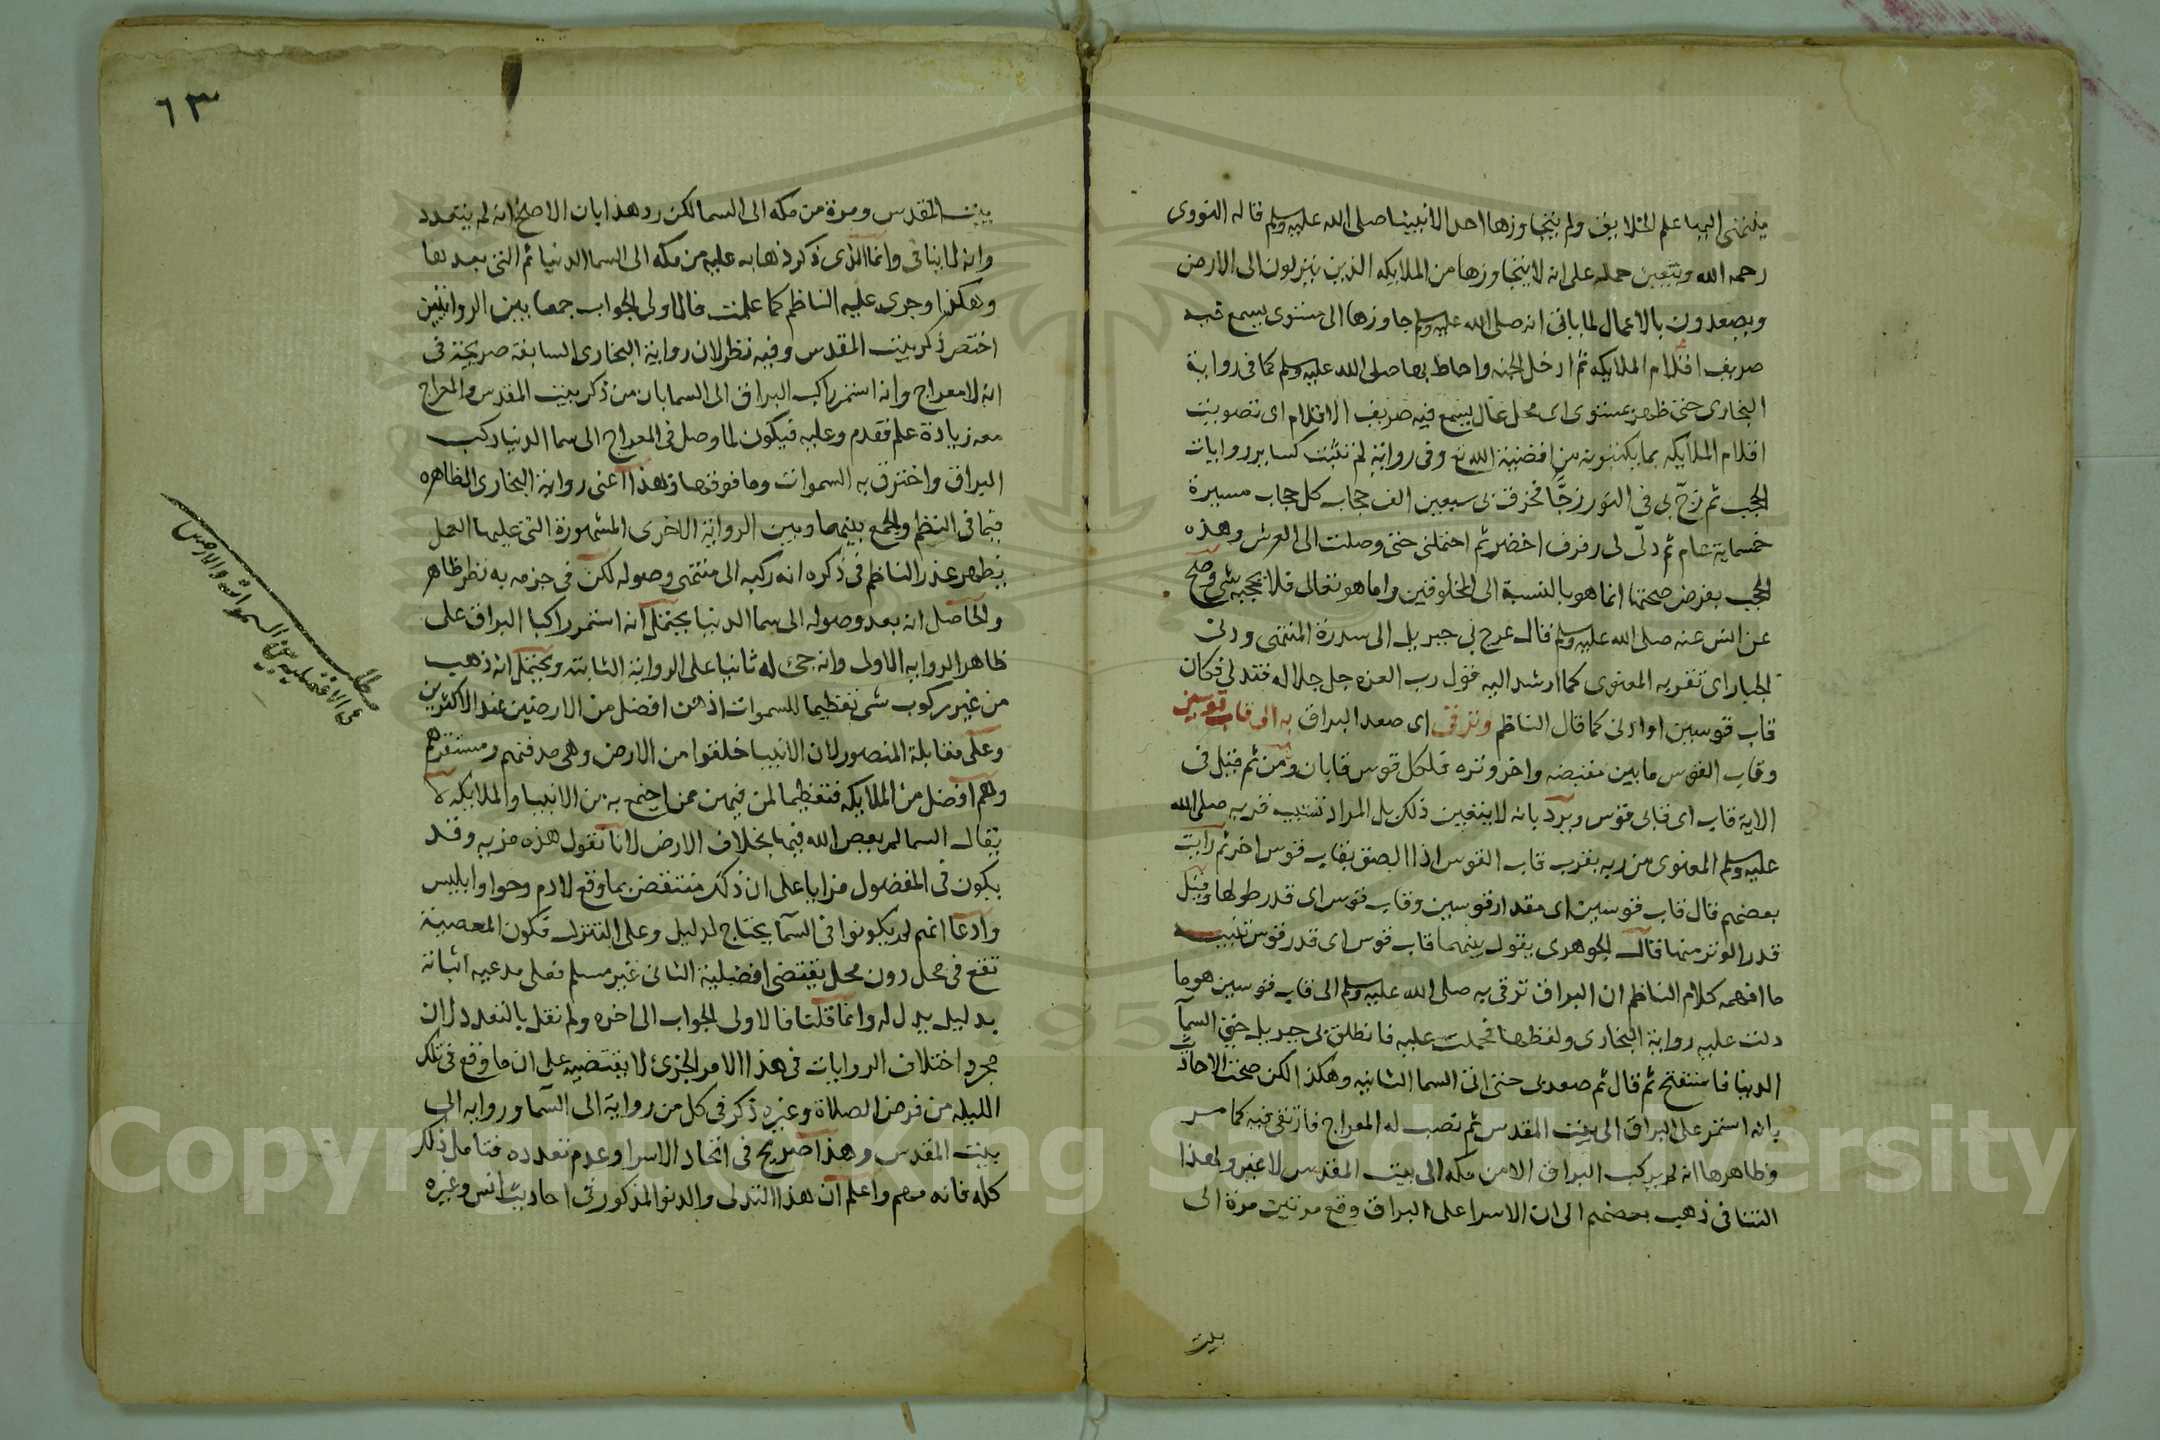 فينتهى اليها علم الخلايق ولم يتجاوزها احد الا نبينا صلى الله عليه وسلم قاله النووى
رحمه الله ويتعين حمله على انه لا يتجاوزها من الملايكه الذين ينزلون الى الارض
ويصعدون بالاعمال لما ياتى انه صلى الله عليه وسلم جاوزها الى مستوى يسمع فيه
صريف اقلام الملايكه ثم ادخل الجنه واحاط بها صلى الله عليه وسلم كما فى رواية
البخارى حتى ظهر بمستوى اى محل عال يسمع فيه صريف الاقلام اى تصويت
اقلام الملايكه بما يكتبونه من اقضية الله تع وفى رواية لم تثبت كساير روايات
الحجب ثم زج بى فى النور زجًّا فخرق بى سبعين الف حجاب كل حجاب مسيرة
خمسماية عام ثم دلى لى رفرف اخضر ثم احتملنى حتى وصلت الى العرش وهذه
الحجب بفرض صحتها انما هو بالنسبة الى المخلوقين واما هو تعالى فلا يحجبه شى وصح
عن انس عنه صلى الله عليه وسلم قال عرج بى جبريل الى سدرة المنتهى ودنى
الجبار اى تقربه المعنوى كما ارشد اليه قول رب العزه جل جلاله فتدلى فكان
قاب قوسين او ادنى كما قال الناظم وترقى اى صعد البراق به الى قاب قوسين
وقاب القوس ما بين مقبضه واخر وتره فلكل قوس قابان ومن ثم قيل فى
الاية قاب اى قابى قوس ويرد بانه لا يتعين ذلك بل المراد تشبيه قربه صلى الله
عليه وسلم المعنوى من ربه بقرب قاب القوس اذا الصق بقاب قوس اخر ثم رايت
بعضهم قال قاب قوسين اى مقدار قوسين وقاب قوس اى قدر طولها وقيل
قدر الوتر منها قال الجوهرى يقول بينهما قاب قوس اى قدر قوس تنبيه
ما افهمه كلام الناظم ان البراق ترقى به صلى الله عليه وسلم الى قاب قوسين هو ما
دلت عليه رواية البخارى ولفظها فحملت عليه فانطلق بى جبريل حتى السمآ
الدنيا فاستفتح ثم قال ثم صعد بى حتى اتى السما الثانيه وهكذا لكن صحت الاحاد
بانه استمر على البراق الى بيت المقدس ثم نصب له المعراج فارتقى فيه كما مر
وظاهرها انه لم يركب البراق الا من مكه الى بيت المقدس لا غير ولهذا
التنافى ذهب بعضهم الى ان الاسرا على البراق وقع مرتين مرة الى
بيت
٦٣
بيت المقدس ومرة من مكه الى السما لكن رد هذا بان الاصح انه لم يتعدد
وانه لما ينافى وانما الذى ذكر ذهابه عليه من مكه الى السما الدنيا ثم التى بعدها
وهكذا وجرى عليه الناظم كما علمت فالاولى الجواب جمعا بين الروايتين
اختصر ذكر بيت المقدس وفيه نظر لان رواية البخارى السابقة صريحة فى
انه لا معراج وانه استمر راكب البراق الى السما بان من ذكر بيت المقدس والمعراج
معه زيادة علم فقدم وعليه فيكون لما وصل فى المعراج الى سما الدنيا ركب
البراق واخترق به السموات وما فوقها وهذا اعنى رواية البخارى الظاهره
فيما فى النظم والجمع بينهما وبين الرواية الاخرى المشهورة التى عليها العمل
يظهر عذر الناظم فى ذكره انه ركبه الى منتهى وصوله لكن فى جزمه به نظر ظاهر
والحاصل انه بعد وصوله الى سما الدنيا يحتمل انه استمر راكبا البراق على
ظاهر الروايه الاولى وانه جئ له ثانيا على الرواية الثابته ويحتمل انه ذهب
من غير ركوب شى تعظيما للسموات اذ هن افضل من الارضين عند الاكثرين
وعلى مقابلة المنصور لان الانبيا خلقوا من الارض وهى مدفنهم ومستقرهم
وهم افضل من الملايكه فتعظيما لمن فيهن ممن اجتمع به من الانبيا والملايكه لا
يقال السما لم يعص الله فيها بخلاف الارض لانا نقول هذه مزيه وقد
يكون فى المفضول مزايا على ان ذلك منتقض بما وقع لادم وحوا وابليس
وادعا انهم لم يكونوا فى السمآ يحتاج لدليل وعلى التنزل فكون المعصية
تقع فى محل دون محل يقتضى افضلية الثانى غير مسلم فعلى مدعيه اثباته
بدليل يدل له وانما قلنا فالاولى الجواب الى اخره ولم نقل بالتعدد لان
مجرد اختلاف الروايات فى هذا الامر الجزئ لا يقتضيه على ان ما وقع فى تلك
الليله من فرض الصلاة وغيره ذكر فى كل من رواية الى السمآ وروايه الى
بيت المقدس وهذا صريح فى اتحاد الاسرا وعدم تعدده فتامل ذلك
كله فانه مهم واعلم ان هذا التدلى والدنو المذكور فى احاديث انس وغيره
مطلب
فى الافضلية بين السموات والارض
Copyright © King Saud University